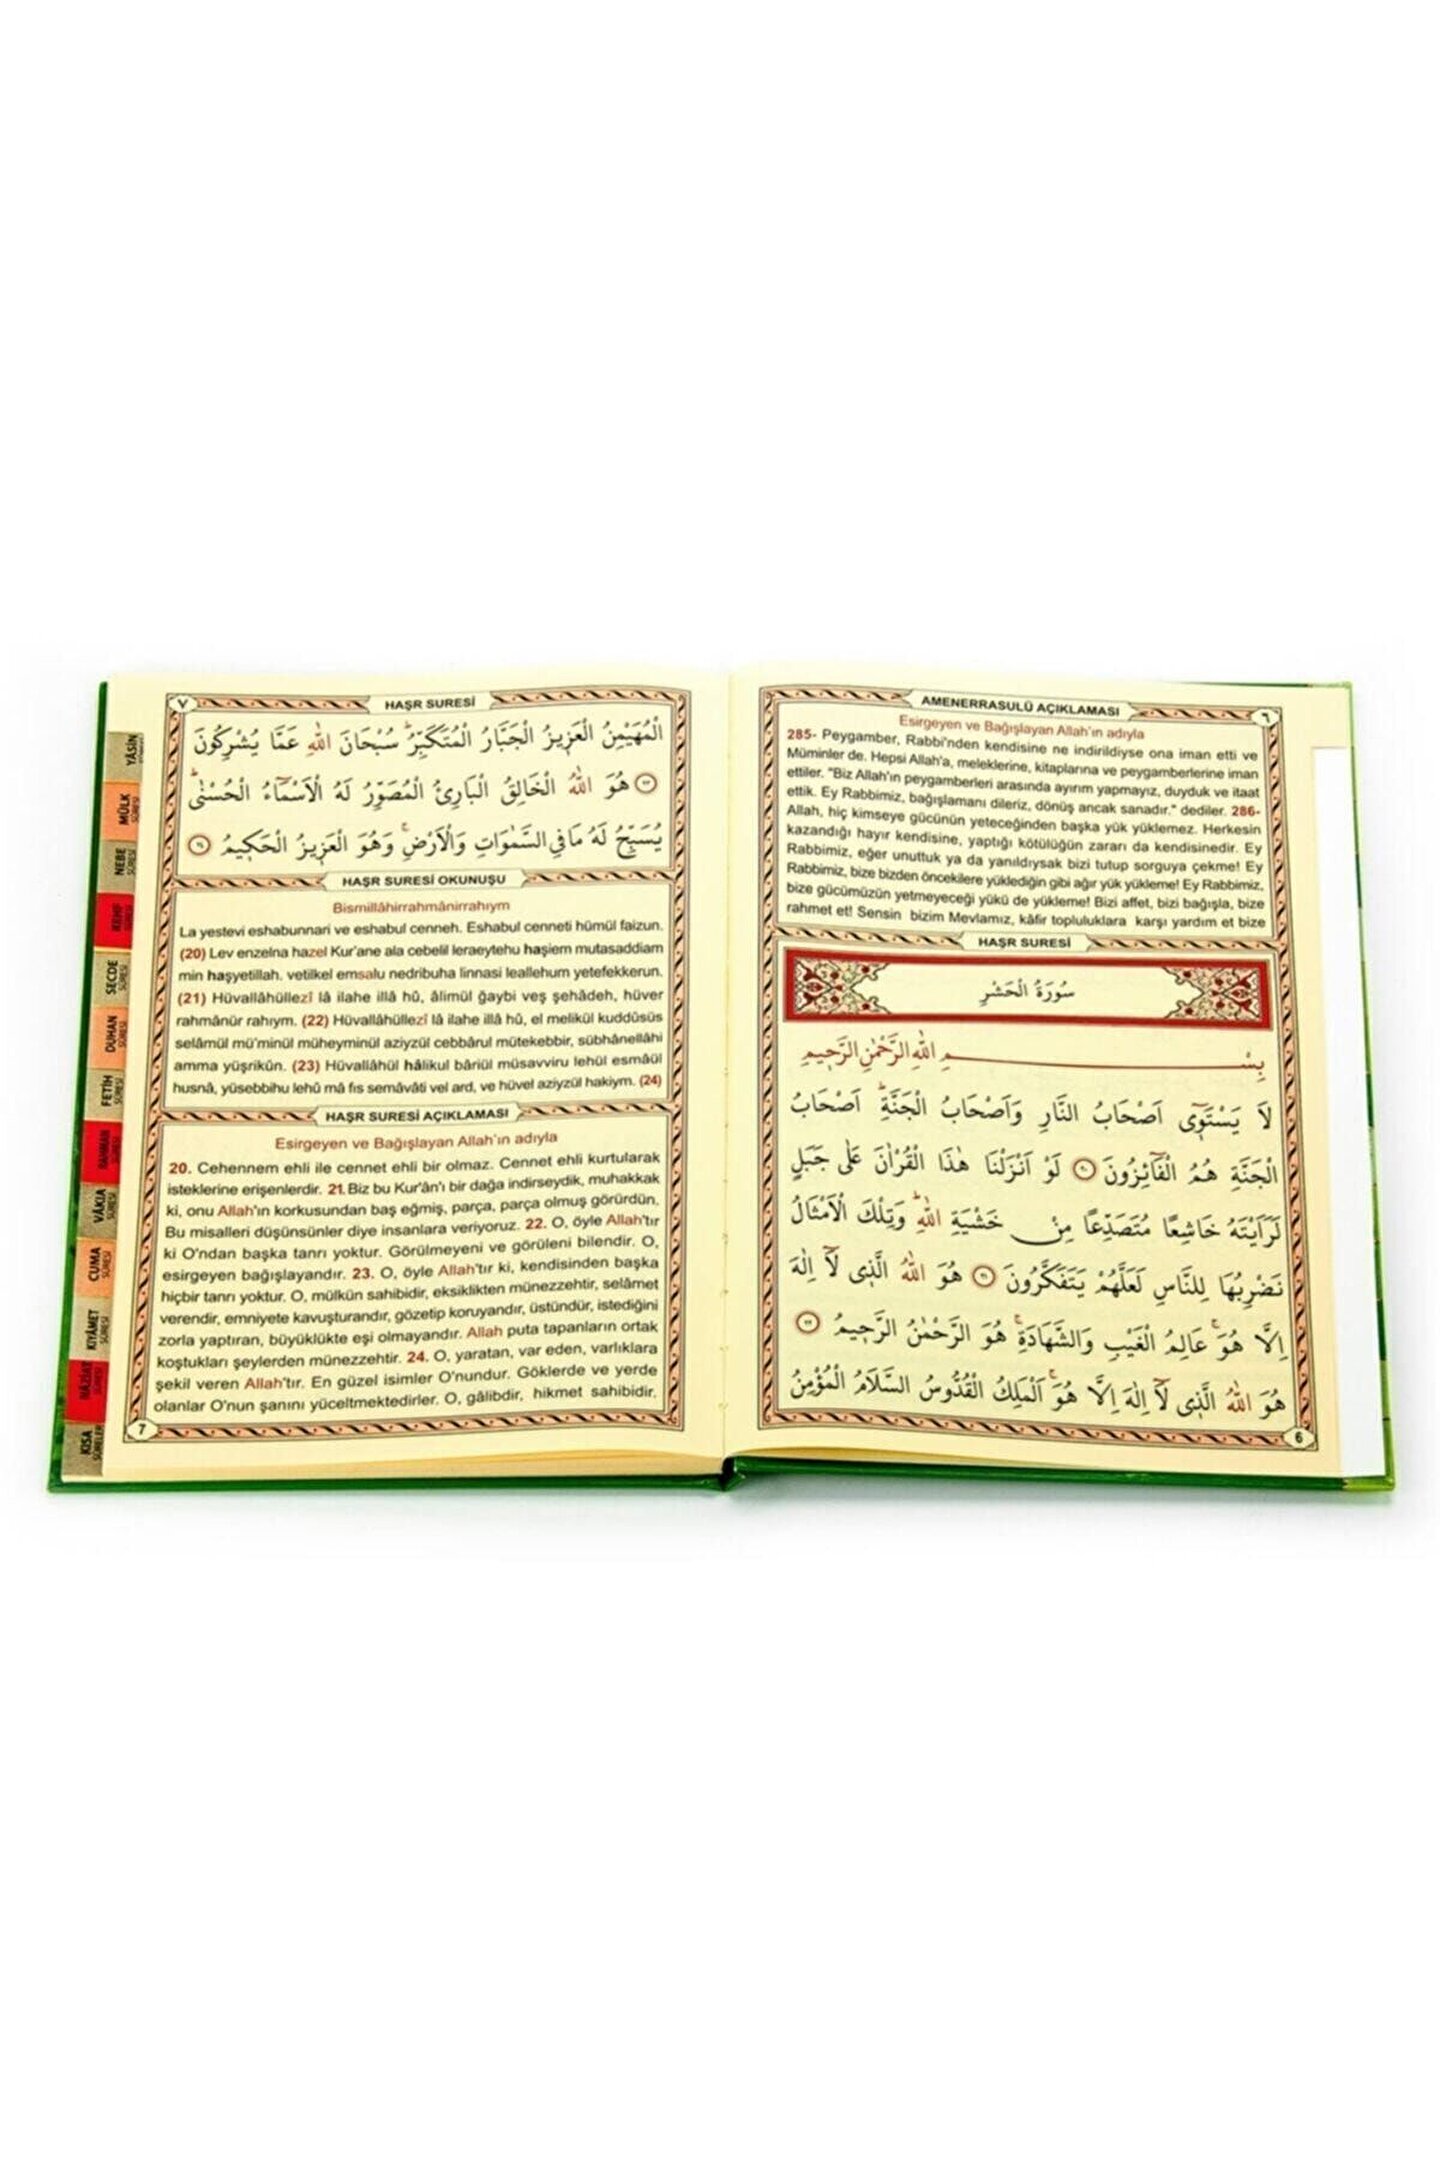 AMENERRASULÜ AÇIKLAMASI
٦
Esirgeyen ve Bağışlayan Allah'ın adıyla
285- Peygamber, Rabbi'nden kendisine ne indirildiyse ona iman etti ve
Müminler de. Hepsi Allah'a, meleklerine, kitaplarına ve peygamberlerine iman
ettiler. "Biz Allah'ın peygamberleri arasında ayırım yapmayız, duyduk ve itaat
ettik. Ey Rabbimiz, bağışlamanı dileriz, dönüş ancak sanadır." dediler. 286-
Allah, hiç kimseye gücünün yeteceğinden başka yük yüklemez. Herkesin
kazandığı hayır kendisine, yaptığı kötülüğün zararı da kendisinedir. Ey
Rabbimiz, eğer unuttuk ya da yanıldıysak bizi tutup sorguya çekme! Ey
Rabbimiz, bize bizden öncekilere yüklediğin gibi ağır yük yükleme! Ey Rabbimiz,
bize gücümüzün yetmeyeceği yükü de yükleme! Bizi affet, bizi bağışla, bize
rahmet et! Sensin bizim Mevlamız, kâfir topluluklara karşı yardım et bize
HAŞR SURESİ
سُورَةُ الْحَشْرِ
بِسْمِ اللّٰهِ الرَّحْمٰنِ الرَّحِيمِ
لَا يَسْتَوٓى اَصْحَابُ النَّارِ وَاَصْحَابُ الْجَنَّةِۜ اَصْحَابُ
الْجَنَّةِ هُمُ الْفَٓائِزُونَ ﴿٢٠﴾ لَوْ اَنْزَلْنَا هٰذَا الْقُرْاٰنَ عَلٰى جَبَلٍ
لَرَاَيْتَهُ خَاشِعًا مُتَصَدِّعًا مِنْ خَشْيَةِ اللّٰهِۜ وَتِلْكَ الْاَمْثَالُ
نَضْرِبُهَا لِلنَّاسِ لَعَلَّهُمْ يَتَفَكَّرُونَ ﴿٢١﴾ هُوَ اللّٰهُ الَّذٖى لَٓا اِلٰهَ
اِلَّا هُوَۚ عَالِمُ الْغَيْبِ وَالشَّهَادَةِۚ هُوَ الرَّحْمٰنُ الرَّحٖيمُ ﴿٢٢﴾
هُوَ اللّٰهُ الَّذٖى لَٓا اِلٰهَ اِلَّا هُوَۚ اَلْمَلِكُ الْقُدُّوسُ السَّلَامُ الْمُؤْمِنُ
6
٧
HAŞR SURESİ
الْمُهَيْمِنُ الْعَزٖيزُ الْجَبَّارُ الْمُتَكَبِّرُۜ سُبْحَانَ اللّٰهِ عَمَّا يُشْرِكُونَ
﴿٢٣﴾ هُوَ اللّٰهُ الْخَالِقُ الْبَارِئُ الْمُصَوِّرُ لَهُ الْاَسْمَٓاءُ الْحُسْنٰىۜ
يُسَبِّحُ لَهُ مَا فِى السَّمٰوَاتِ وَالْاَرْضِۚ وَهُوَ الْعَزٖيزُ الْحَكٖيمُ ﴿٢٤﴾
HAŞR SURESİ OKUNUŞU
Bismillâhirrahmânirrahıym
La yestevi eshabunnari ve eshabul cenneh. Eshabul cenneti hümül faizun.
(20) Lev enzelna hazel Kur'ane ala cebelil leraeytehu haşiem mutasaddiam
min haşyetillah. vetilkel emsalu nedribuha linnasi leallehum yetefekkerun.
(21) Hüvallâhüllezî lâ ilahe illâ hû, âlimül ğaybi veş şehâdeh, hüver
rahmânür rahıym. (22) Hüvallâhüllezî lâ ilahe illâ hû, el melikül kuddûsüs
selâmül mü'minül müheyminül aziyzül cebbârul mütekebbir, sübhânellâhi
amma yüşrikûn. (23) Hüvallâhül hâlikul bâriül müsavviru lehül esmâül
husnâ, yüsebbihu lehû mâ fıs semâvâti vel ard, ve hüvel aziyzül hakiym. (24)
HAŞR SURESİ AÇIKLAMASI
Esirgeyen ve Bağışlayan Allah'ın adıyla
20. Cehennem ehli ile cennet ehli bir olmaz. Cennet ehli kurtularak
isteklerine erişenlerdir. 21. Biz bu Kur'ân'ı bir dağa indirseydik, muhakkak
ki, onu Allah'ın korkusundan baş eğmiş, parça, parça olmuş görürdün.
Bu misalleri düşünsünler diye insanlara veriyoruz. 22. O, öyle Allah'tır
ki O'ndan başka tanrı yoktur. Görülmeyeni ve görüleni bilendir. O,
esirgeyen bağışlayandır. 23. O, öyle Allah'tır ki, kendisinden başka
hiçbir tanrı yoktur. O, mülkün sahibidir, eksiklikten münezzehtir, selâmet
verendir, emniyete kavuşturandır, gözetip koruyandır, üstündür, istediğini
zorla yaptıran, büyüklükte eşi olmayandır. Allah puta tapanların ortak
koştukları şeylerden münezzehtir. 24. O, yaratan, var eden, varlıklara
şekil veren Allah'tır. En güzel isimler O'nundur. Göklerde ve yerde
olanlar O'nun şanını yüceltmektedirler. O, gâlibdir, hikmet sahibidir.
7
YÂSİN
MÜLK SÛRESİ
NEBE SÛRESİ
KEHF SÛRESİ
SECDE SÛRESİ
DUHAN SÛRESİ
FETİH SÛRESİ
RAHMAN SÛRESİ
VÂKIA SÛRESİ
CUMA SÛRESİ
KIYÂMET SÛRESİ
KISA SÛRELER